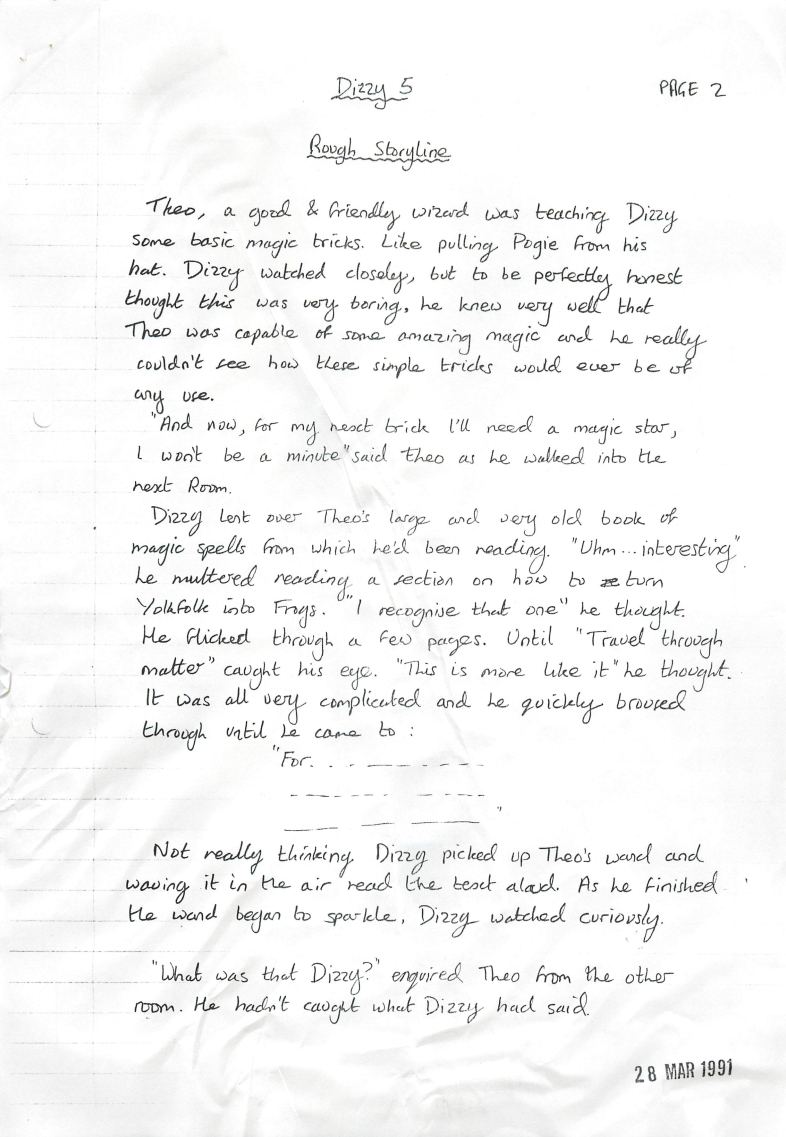 Dizzy 5
PAGE 2
Rough Storyline
Theo, a good & friendly wizard was teaching Dizzy
some basic magic tricks. Like pulling Pogie from his
hat. Dizzy watched closely, but to be perfectly honest
thought this was very boring, he knew very well that
Theo was capable of some amazing magic and he really
couldn't see how these simple tricks would ever be of
any use.
"And now, for my next trick I'll need a magic star,
I won't be a minute" said Theo as he walked into the
next Room.
Dizzy lent over Theo's large and very old book of
magic spells from which he'd been reading. "Uhm... interesting"
he muttered reading a section on how to turn
Yolkfolk into Frogs. "I recognise that one" he thought.
He flicked through a few pages. Until "Travel through
matter" caught his eye. "This is more like it" he thought.
It was all very complicated and he quickly browsed
through until he came to :
"For. . . — — — — — —
— — — — — — — —
— — — "
Not really thinking Dizzy picked up Theo's wand and
waving it in the air read the text aloud. As he finished
the wand began to sparkle, Dizzy watched curiously.
"What was that Dizzy?" enquired Theo from the other
room. He hadn't caught what Dizzy had said.
28 MAR 1991